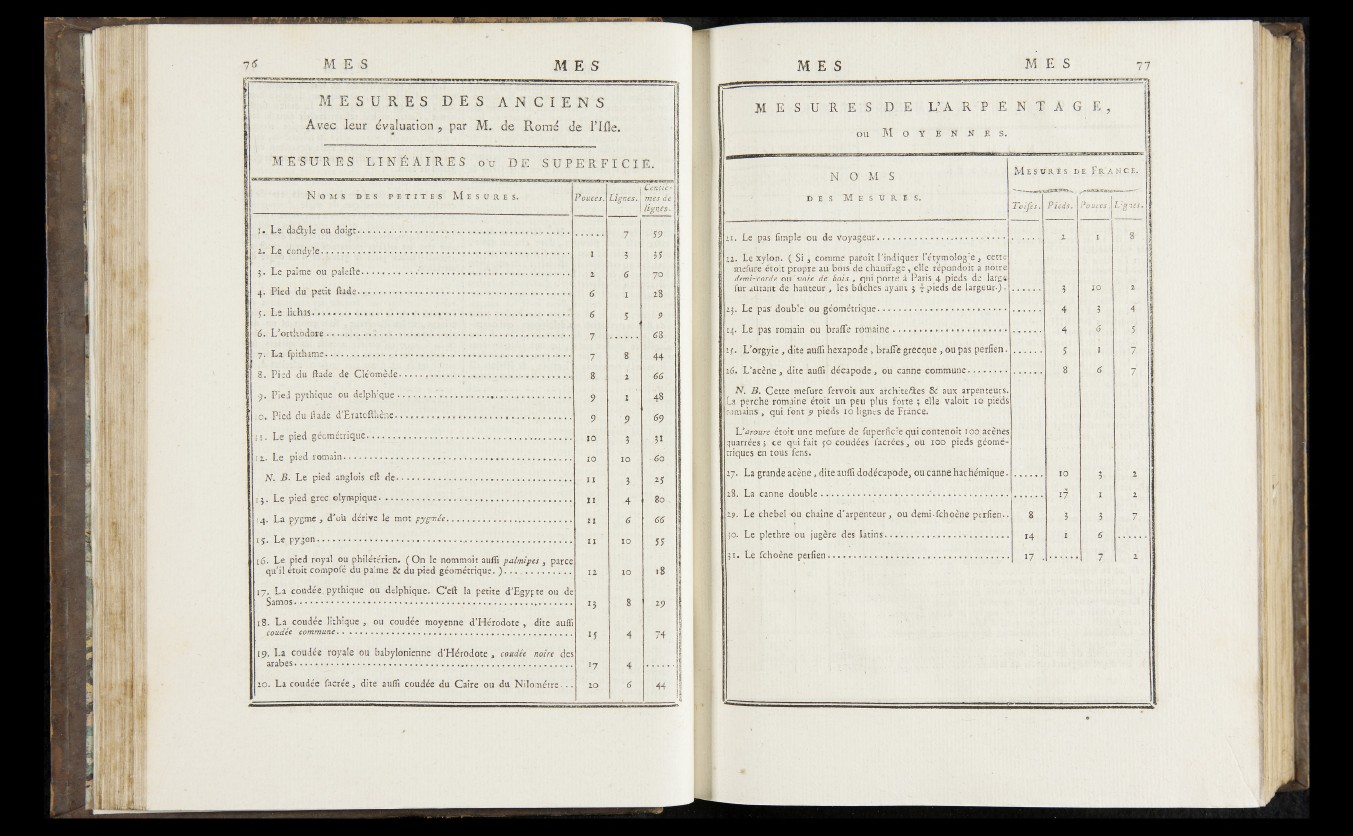 76 MES MES
MESURES DES ANCIENS
Avec leur évaluation, par M. de Romé de l'Iſle.
MESURES LINÉAIRES ou DE SUPERFICIE.
NOMS DES PETITES MESURES. Pouces. Lignes. Centiemes de lignes.
1. Le dactyle ou doigt. 7 59
2. Le condyle. 1 3 35
3. Le palme ou paleſte. 2 6 70
4. Pied du petit ſtade. 6 1 28
5. Le lichas. 6 5 9
6. L'orthodore 7 ...... 68
7. La ſpithame. 7 8 44
8. Pied du ſtade de Cléomède. 8 2 66
9. Pied pythique ou delphique 9 1 48
10. Pied du ſtade d'Eratoſthène. 9 9 69
11. Le pied géométrique. 10 3 31
12. Le pied romain. 10 10 60
N. B. Le pied anglois eſt de. 11 3 25
13. Le pied grec olympique. 11 4 80
14. La pygme, d'où dérive le mot pygmée. 11 6 66
15. Le pygon. 11 10 55
16. Le pied royal ou philétérien. (On le nommoit auſſi palmipes, parce
qu'il étoit compoſé du palme & du pied géométrique.) 12 10 18
17. La coudée pythique ou delphique. C'eſt la petite d'Egypte ou de
Samos. 13 8 29
18. La coudée lithique, ou coudée moyenne d'Hérodote, dite auſſi
coudée commune. 15 4 74
19. La coudée royale ou babylonienne d'Hérodote, coudée noire des
arabes. 17 4 ......
20. La coudée ſacrée, dite auſſi coudée du Caire ou du Nilométre. 20 6 44
MES MES 77
MESURES DE L'ARPENTAGE,
ou MOYENNES.
NOMS
DES MESURES.
MESURES DE FRANCE.
Toiſes. Pieds. Pouces. Lignes.
21. Le pas ſimple ou de voyageur. ...... 2 1 8
22. Le xylon. (Si, comme paroît l'indiquer l'étymologie, cette
meſure étoit propre au bois de chauffage, elle répondoit à notre
demi-corde ou voie de bois, qui porte à Paris 4 pieds de large
ſur autant de hauteur, les bûches ayant 3 ½ pieds de largeur.) ...... 3 10 2
23. Le pas double ou géométrique. ...... 4 3 4
24. Le pas romain ou braſſe romaine ...... 4 6 5
25. L'orgyie, dite auſſi hexapode, braſſe grecque, ou pas perſien. ...... 5 1 7
26. L'acène, dite auſſi décapode, ou canne commune. ...... 8 6 7
N. B. Cette meſure ſervoit aux architectes & aux arpenteurs.
La perche romaine étoit un peu plus forte; elle valoit 10 pieds
romains, qui font 9 pieds 10 lignes de France.
L'aroure étoit une meſure de ſuperficie qui contenoit 100 acènes
quarrées; ce qui fait 50 coudées ſacrées, ou 100 pieds géomé-
triques en tous ſens.
27. La grande acène, dite auſſi dodécapode, ou canne hachémique. ...... 10 3 2
28. La canne double ...... 17 1 2
29. Le chebel ou chaîne d'arpenteur, ou demi-ſchoène perſien. 8 3 3 7
30. Le plethre ou jugère des latins. 14 1 6 ......
31. Le ſchoène perſien. 17 ...... 7 2